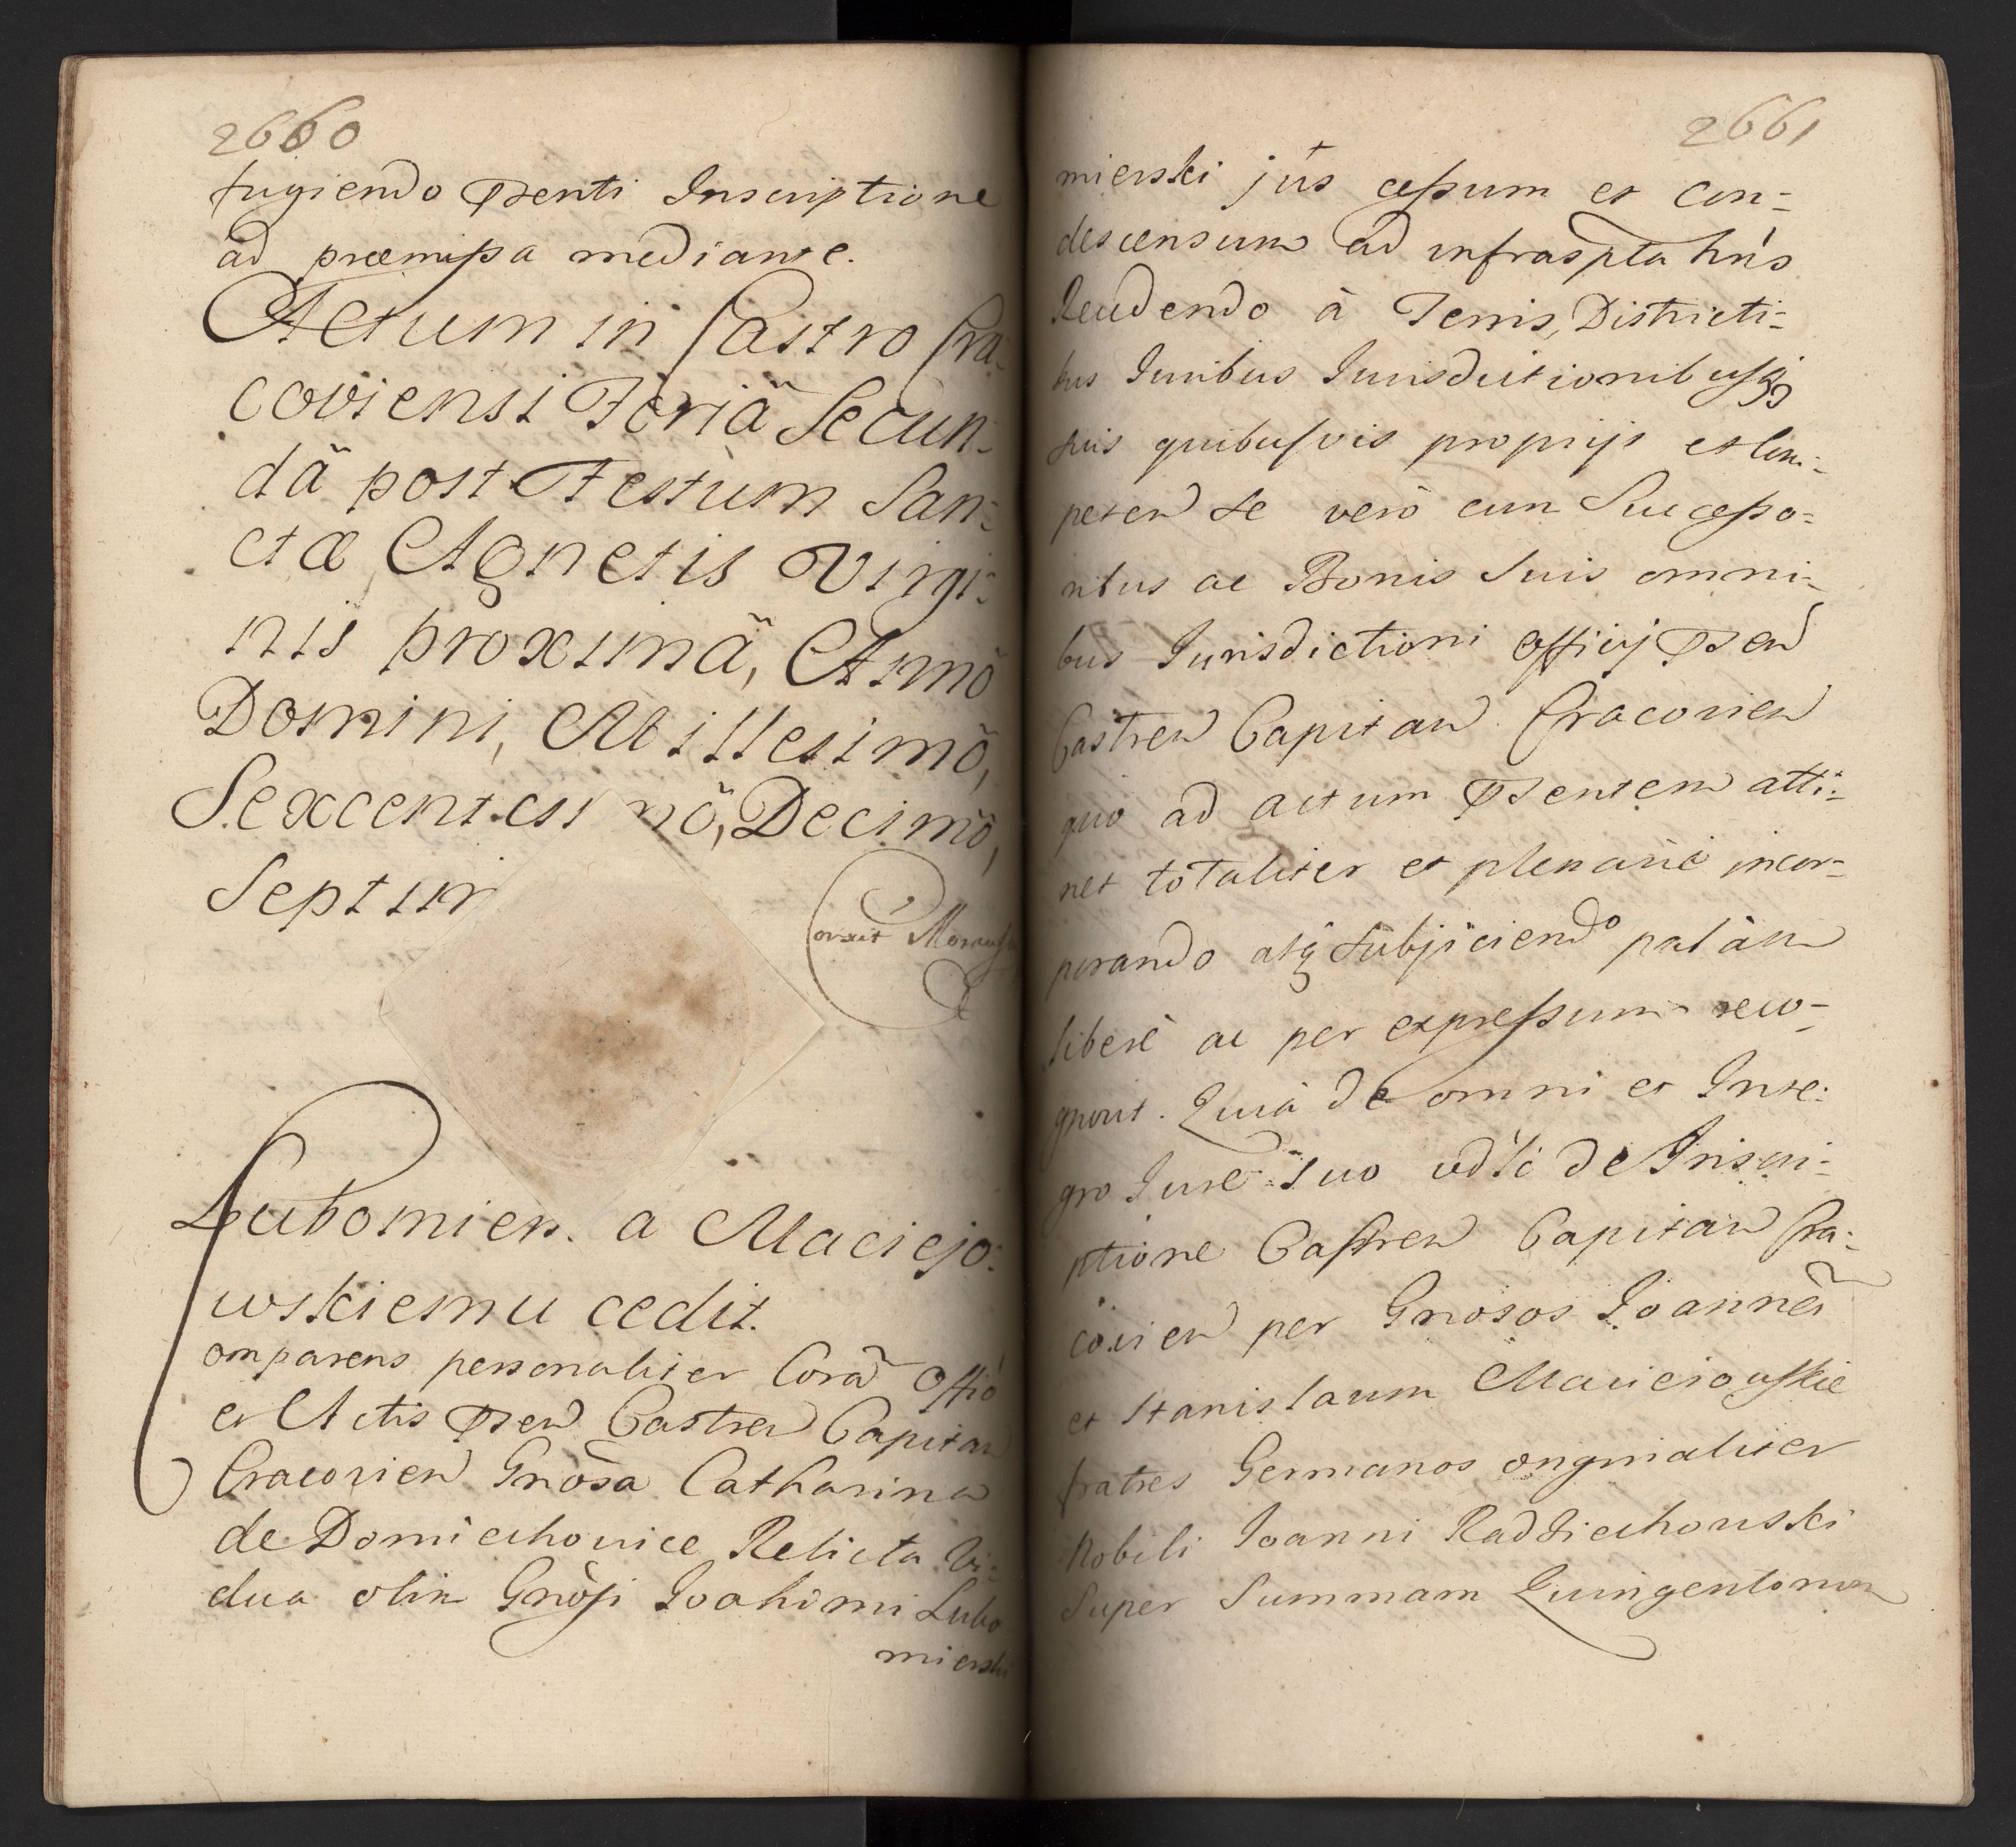 2660
fugiendo Psenti Inscriptione
ad præmissa mediante.
Actum in Castro Cra-
coviensi Feriâ Secun-
dâ post Festum San-
ctæ Agnetis Virgi-
nis proximâ, Annô
Domini, Millesimô,
Sexcentesi mô, Decimô,
Septim
Lubomier. a Maciejo-
wskiemu cedit.
omparens personaliter Corã Offiô
et Actis Psen Castren Capitan
Cracovien Gnôsa Catharina
de Domiechowice Relicta Vi-
dua olim Gnôsi Joahimi Lubo
mierski
2661
mierski jus cessum et con-
descensum ad infraspta hns
Recedendo à Terris, Districti-
bus Iuribus Iurisdictionibusqꝫ
suis quibusvis proprijs et com-
peten se verò cum Successo-
ribus ac Bonis Suis omni-
bus Iurisdictioni Officij Psen
Castren Capitan Cracovien
quo ad actum Psentem atti-
net totaliter et plenariè incor-
porando atqꝫ subjiciendo palàm
liberè ac per expressum reco-
gnovit. Quia de omni et Inte-
gro Iure suo vdlt de Inscri-
ptione Castren Capitan Cra-
covien per Gnosos Joannem
et Stanislaum Macieiowskie
fratres Germanos originaliter
Nobili Joanni Radziechowski
Super Summam Quingentorum